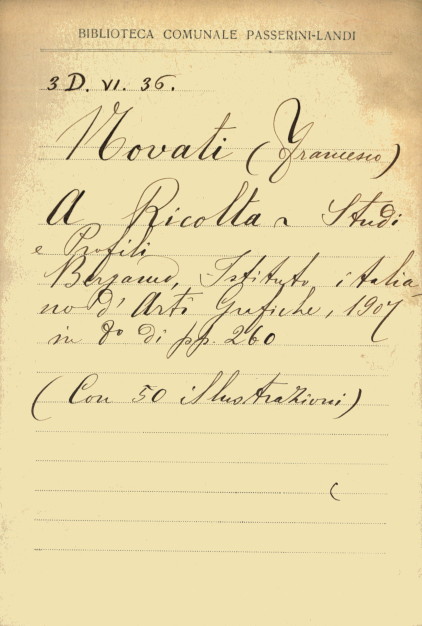 BIBLIOTECA COMUNALE PASSERINI-LANDI
3 D. VI. 36.
Novati (Francesco)
A Ricolta ~ Studi
e Profili
Bergamo, Istituto italia-
no d'Arti Grafiche, 1907
in 8º di pp. 260
(Con 50 illustrazioni)